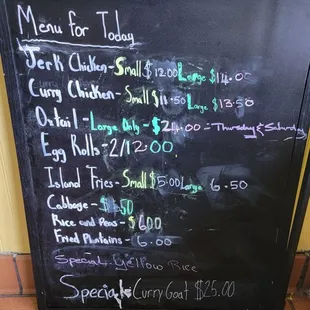 Menu for Today
Jerk Chicken - Small $12.00 Large $14.00
Curry Chicken - Small $11.50 Large $13.50
Oxtail - Large Only - $24.00 - Thursday & Saturday
Egg Rolls - 2/12.00
Island Fries - Small $5.00 Large 6.50
Cabbage -
Rice and Peas - $6.00
Fried Plantains - 6.00
Special Yellow Rice
Special Curry Goat $25.00